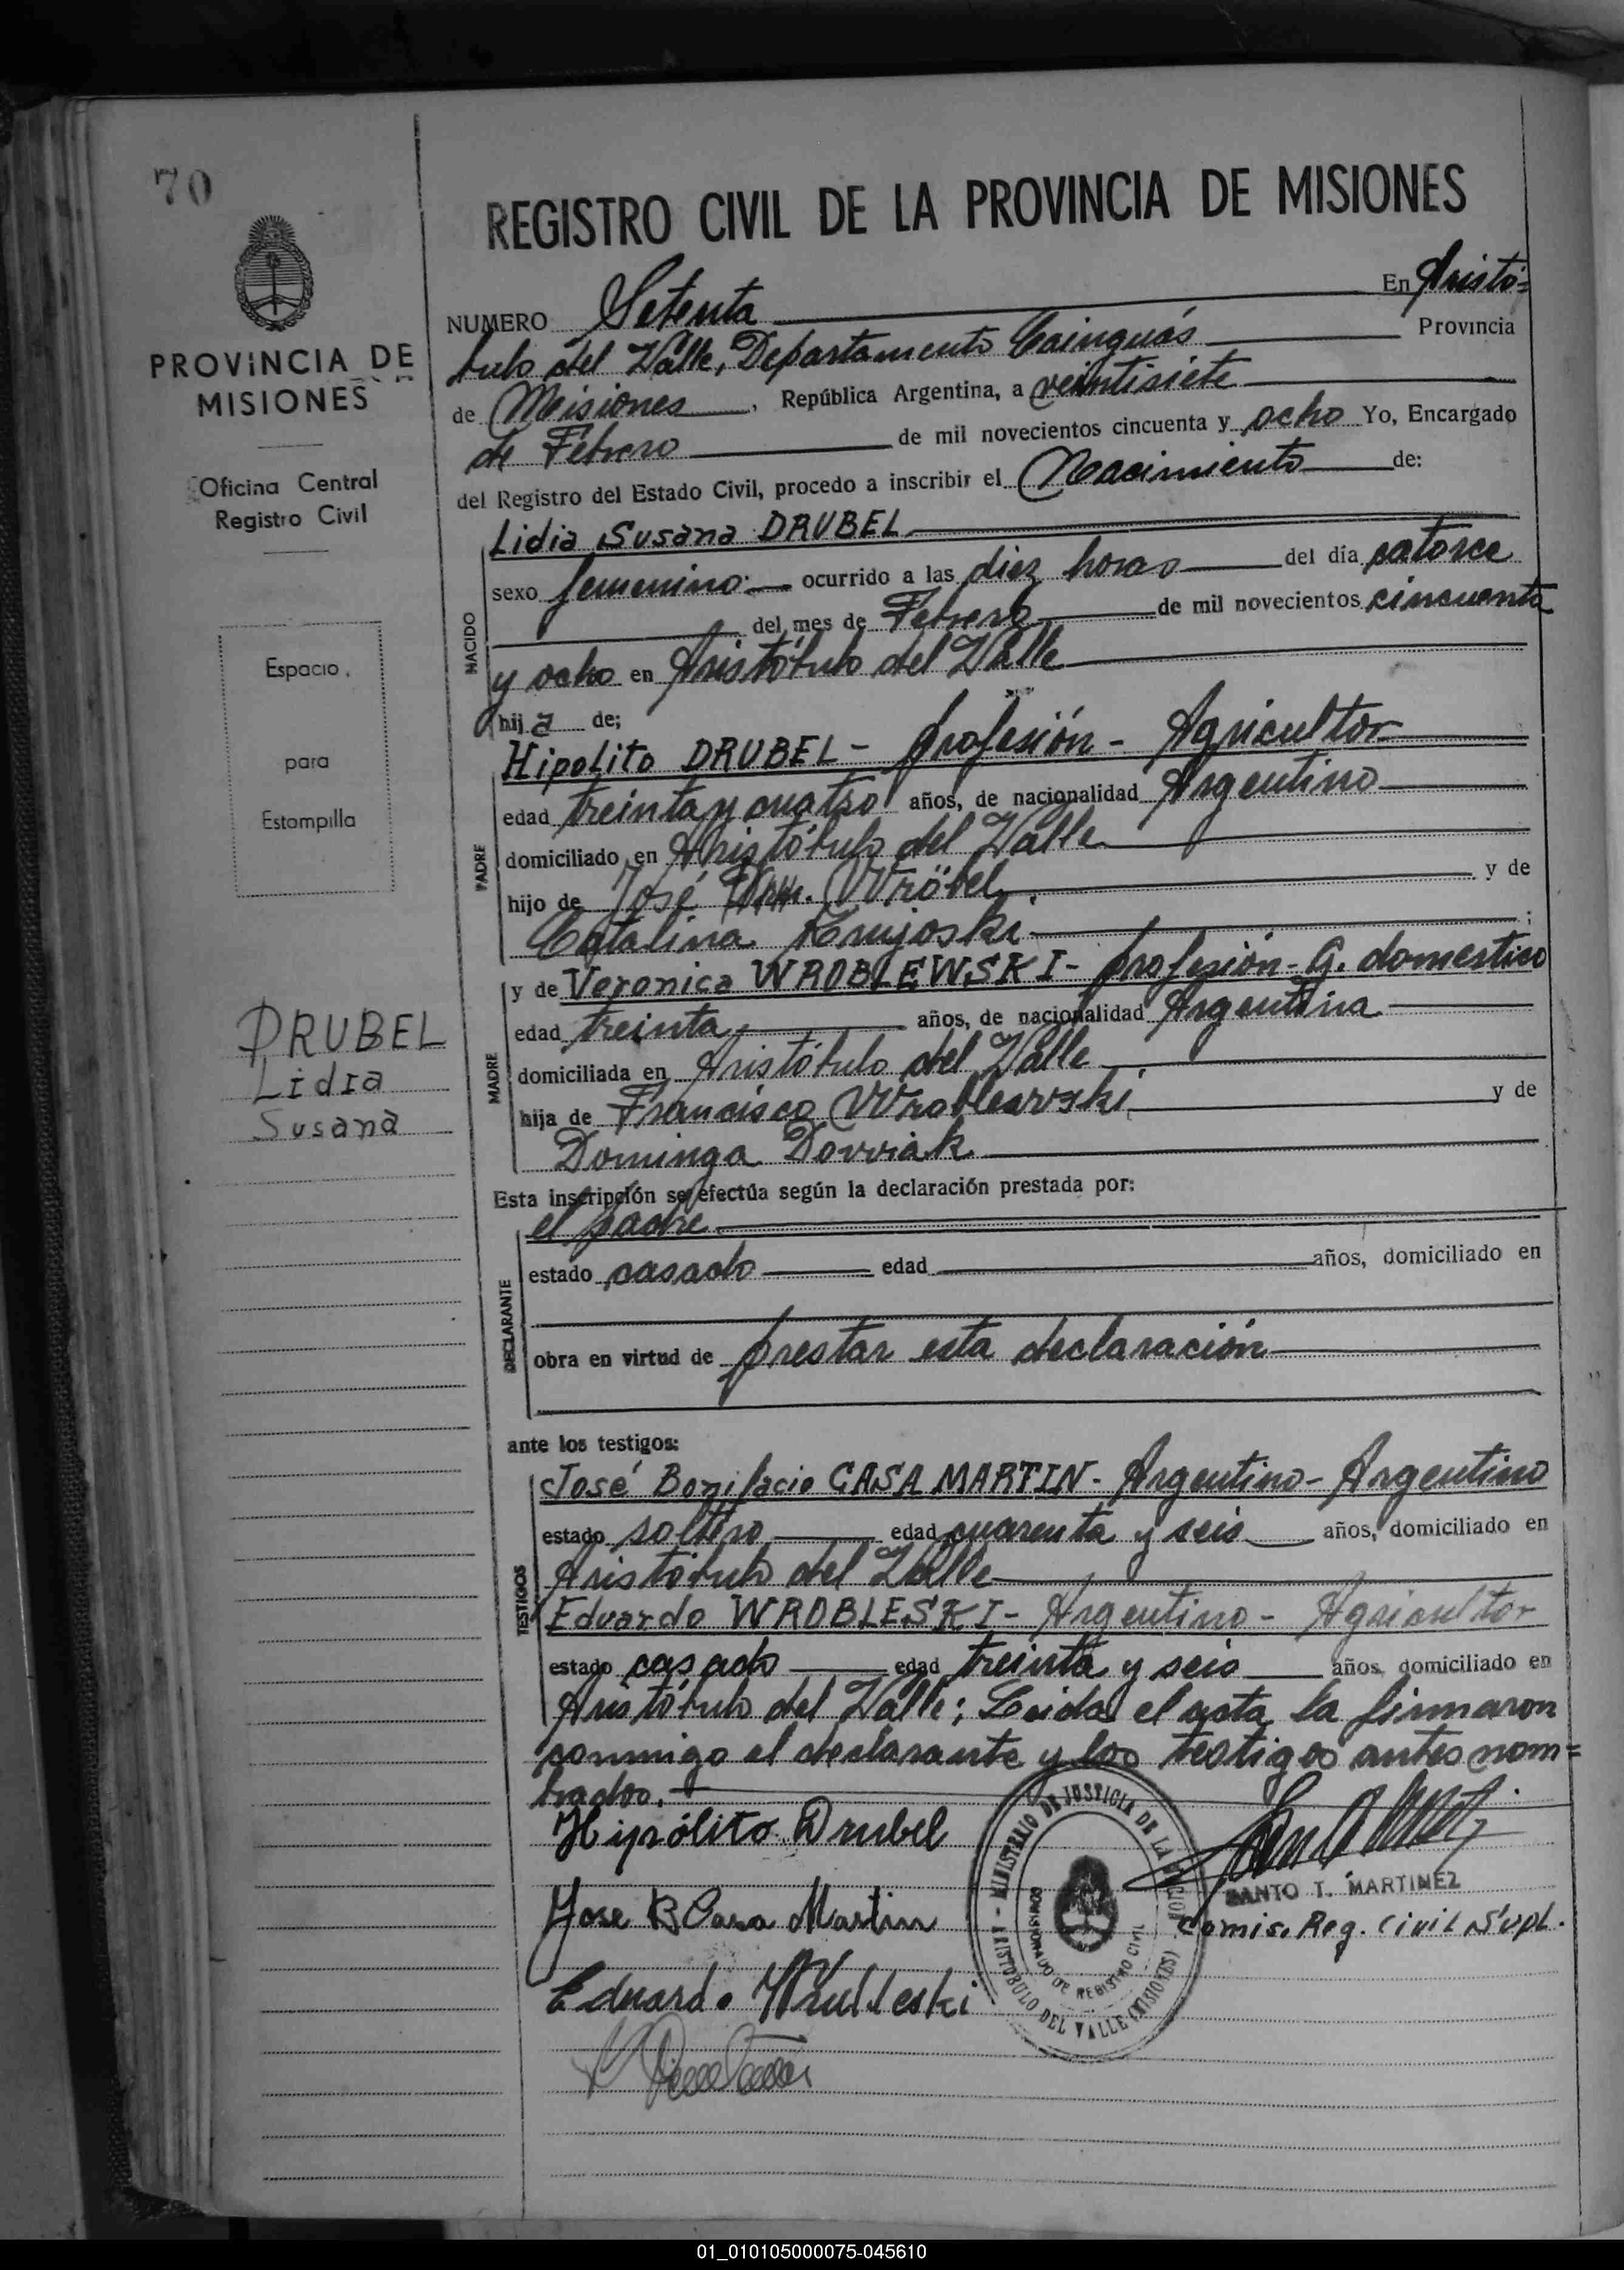 70
PROVINCIA DE
MISIONES
Oficina Central
Registro Civil
Espacio
para
Estampilla
DRUBEL
Lidia
Susana
REGISTRO CIVIL DE LA PROVINCIA DE MISIONES
NUMERO Setenta En Aristó=
bulo del Valle, Departamento Cainguás Provincia
de Misiones, República Argentina, a veintisiete
de Febrero de mil novecientos cincuenta y ocho Yo, Encargado
del Registro del Estado Civil, procedo a inscribir el Nacimiento de:
NACIDO
Lidia Susana DRUBEL
sexo femenino.- ocurrido a las diez horas del día catorce
del mes de Febrero de mil novecientos cincuenta
y ocho en Aristóbulo del Valle
hija de;
PADRE
Hipolito DRUBEL - profesión - Agricultor
edad treinta y cuatro años, de nacionalidad Argentino
domiciliado en Aristóbulo del Valle
hijo de José Wröbel y de
Catalina ;
MADRE
y de Veronica WROBLEWSKI - profesión - G. domestico
edad treinta años, de nacionalidad Argentina
domiciliada en Aristóbulo del Valle
hija de Francisco Wroblewski y de
Dominga Dovviak
Esta inscripción se efectúa según la declaración prestada por:
DECLARANTE
el padre
estado casado edad años, domiciliado en
obra en virtud de prestar esta declaración
ante los testigos:
TESTIGOS
José Bonifacio CASA MARTIN - Argentino - Argentino
estado soltero edad cuarenta y seis años, domiciliado en
Aristóbulo del Valle
Eduardo WROBLESKI - Argentino - Agricultor
estado casado edad treinta y seis años, domiciliado en
Aristóbulo del Valle; Leida el acta la firmaron
conmigo el declarante y los testigos antes nom=
brados.-
Hipólito Drubel
Jose B Casa Martin
Eduardo Wrubleski
MINISTERIO DE JUSTICIA DE LA NACION
COMISIONADO DE REGISTRO CIVIL
ARISTOBULO DEL VALLE (MISIONES)
SANTO T. MARTINEZ
Comis. Reg. Civil Supl.
01_010105000075-045610